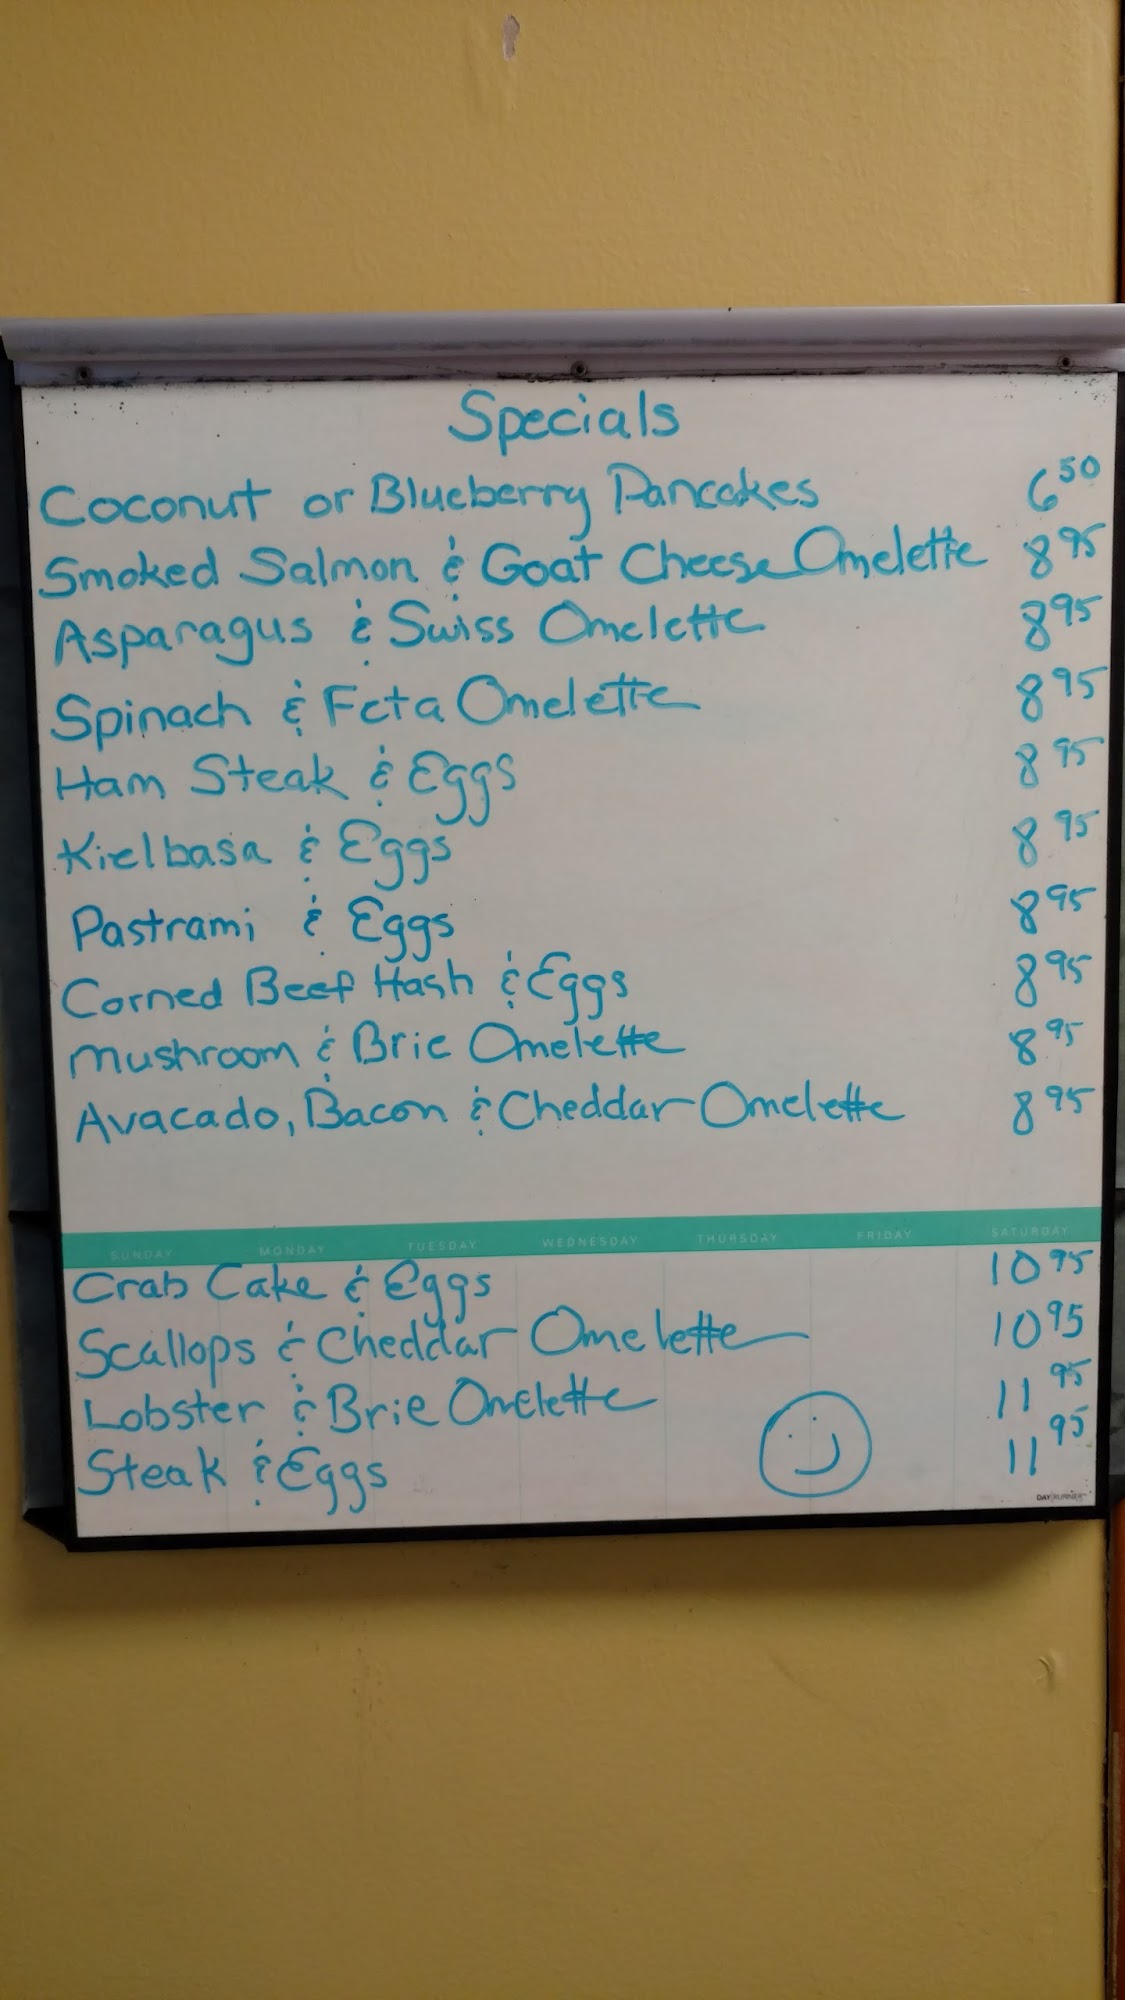 Specials
Coconut or Blueberry Pancakes 6 50
Smoked Salmon & Goat Cheese Omelette 8 95
Asparagus & Swiss Omelette 8 95
Spinach & Feta Omelette 8 95
Ham Steak & Eggs 8 95
Kielbasa & Eggs 8 95
Pastrami & Eggs 8 95
Corned Beef Hash & Eggs 8 95
Mushroom & Brie Omelette 8 95
Avacado, Bacon & Cheddar Omelette 8 95
SUNDAY MONDAY TUESDAY WEDNESDAY THURSDAY FRIDAY SATURDAY
Crab Cake & Eggs 10 95
Scallops & Cheddar Omelette 10 95
Lobster & Brie Omelette 11 95
Steak & Eggs 11 95
DAY RUNNER